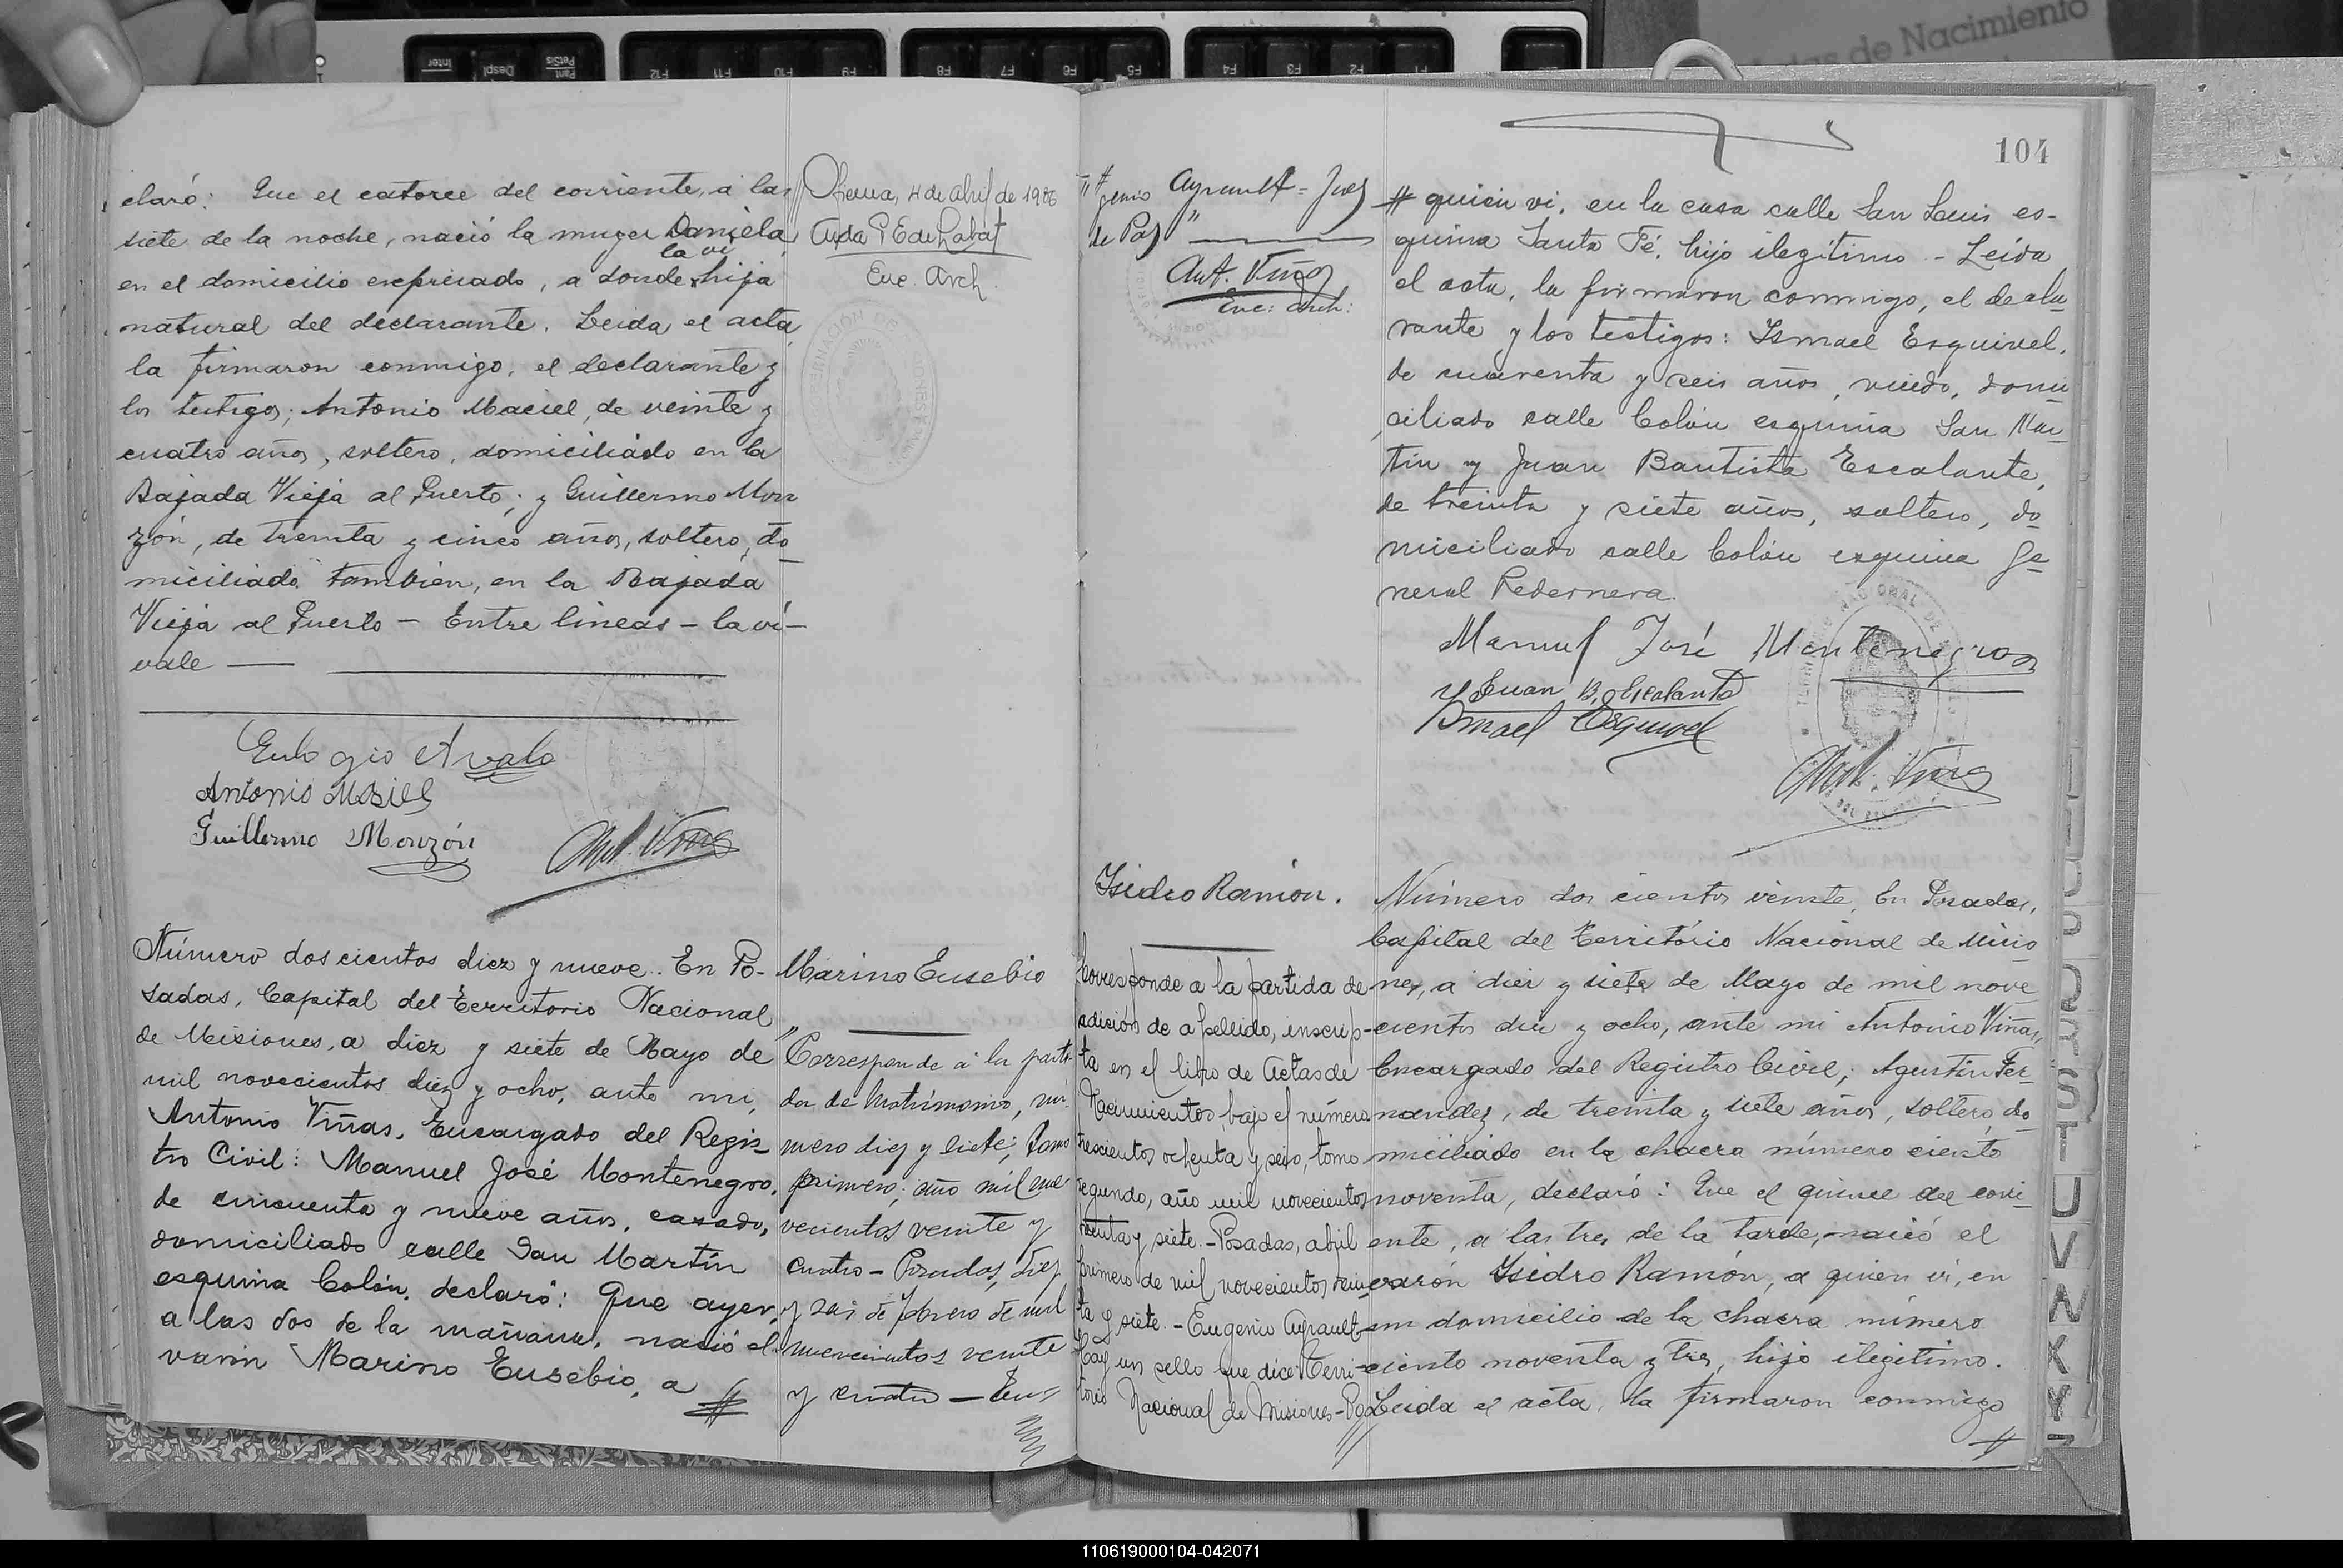 de Nacimiento
Inter
Despl
Pant
PetSis
F12
F11
F10
F9
F8
F7
F6
F5
F4
F3
F2
F1
claró: Que el catorce del corriente, a las
siete de la noche, nació la muger Daniela
la vi
en el domicilio expresado, a donde hija
natural del declarante. Leida el acta,
la firmaron conmigo, el declarante y
los testigos; Antonio Maciel, de veinte y
cuatro años, soltero, domiciliado en la
Bajada Vieja al Puerto; y Guillermo Mon
zón, de treinta y cinco años, soltero, do-
miciliado tambien, en la Bajada
Vieja al Puerto - Entre lineas - la vi -
vale
Eulogio Avalo
Antonio
Guillermo Monzón
Ant. Viñas
4 de abril de 19
Aida
Enc. Arch.
Número dos cientos diez y nueve. En Po-
sadas, Capital del Territorio Nacional
de Misiones, a diez y siete de Mayo de
mil novecientos diez y ocho, ante mi,
Antonio Viñas, Encargado del Regis-
tro Civil: Manuel José Montenegro,
de cincuenta y nueve años, casado,
domiciliado calle San Martín
esquina Colón, declaró: Que ayer,
a las dos de la mañana, nació el
varón Marino Eusebio, a #
Marino Eusebio
"Corresponde á la parti
da de Matrimonio, nú-
mero diez y siete; tomo
primero; año mil nue-
vecientos veinte y
cuatro - Posadas, diez
y seis de febrero de mil
nuevecientos veinte
y cuatro - Eu
104
genio Ayrault - Juez
de Paz"
Ant. Viñas
Enc: arch:
# quien vi, en la casa calle San Luis es-
quina Santa Fé, hijo ilegítimo - Leída
el acta, la firmaron conmigo, el decla
rante y los testigos: Ismael Esquivel,
de cuarenta y seis años, viudo, domi
ciliado calle Colón esquina San Mar
tin y Juan Bautista Escalante,
de treinta y siete años, soltero, do
miciliado calle Colón esquina Ge
neral Pedernera.
Manuel José Montenegro
Juan B. Escalante
Ismael Esquivel
Ant. Viñas
Isidro Ramón.
Corresponde a la partida de
adición de apellido, inscrip-
ta en el libro de Actas de
Nacimientos bajo el número
trescientos ochenta y seis, tomo
segundo, año mil novecientos
treinta y siete. - Posadas, abril
primero de mil novecientos
ta y siete. - Eugenio Ayrault
Hay un sello que dice: Terri-
torio Nacional de Misiones - Po
Número dos cientos veinte. En Posadas,
Capital del Território Nacional de Misio
nes, a diez y siete de Mayo de mil nove
cientos diez y ocho, ante mi Antonio Viñas,
Encargado del Registro Civil; Agustín Fer-
nandez, de treinta y siete años, soltero, do-
miciliado en la chacra número ciento
noventa, declaró: Que el quince del corri-
ente, a las tres de la tarde, nació el
varón Isidro Ramón, a quien vi, en
su domicilio de la chacra número
ciento noventa y tres, hijo ilegítimo.
Leida el acta, la firmaron conmigo
#
P
Q
R
S
T
U
V
W
X
Y
Z
110619000104-042071